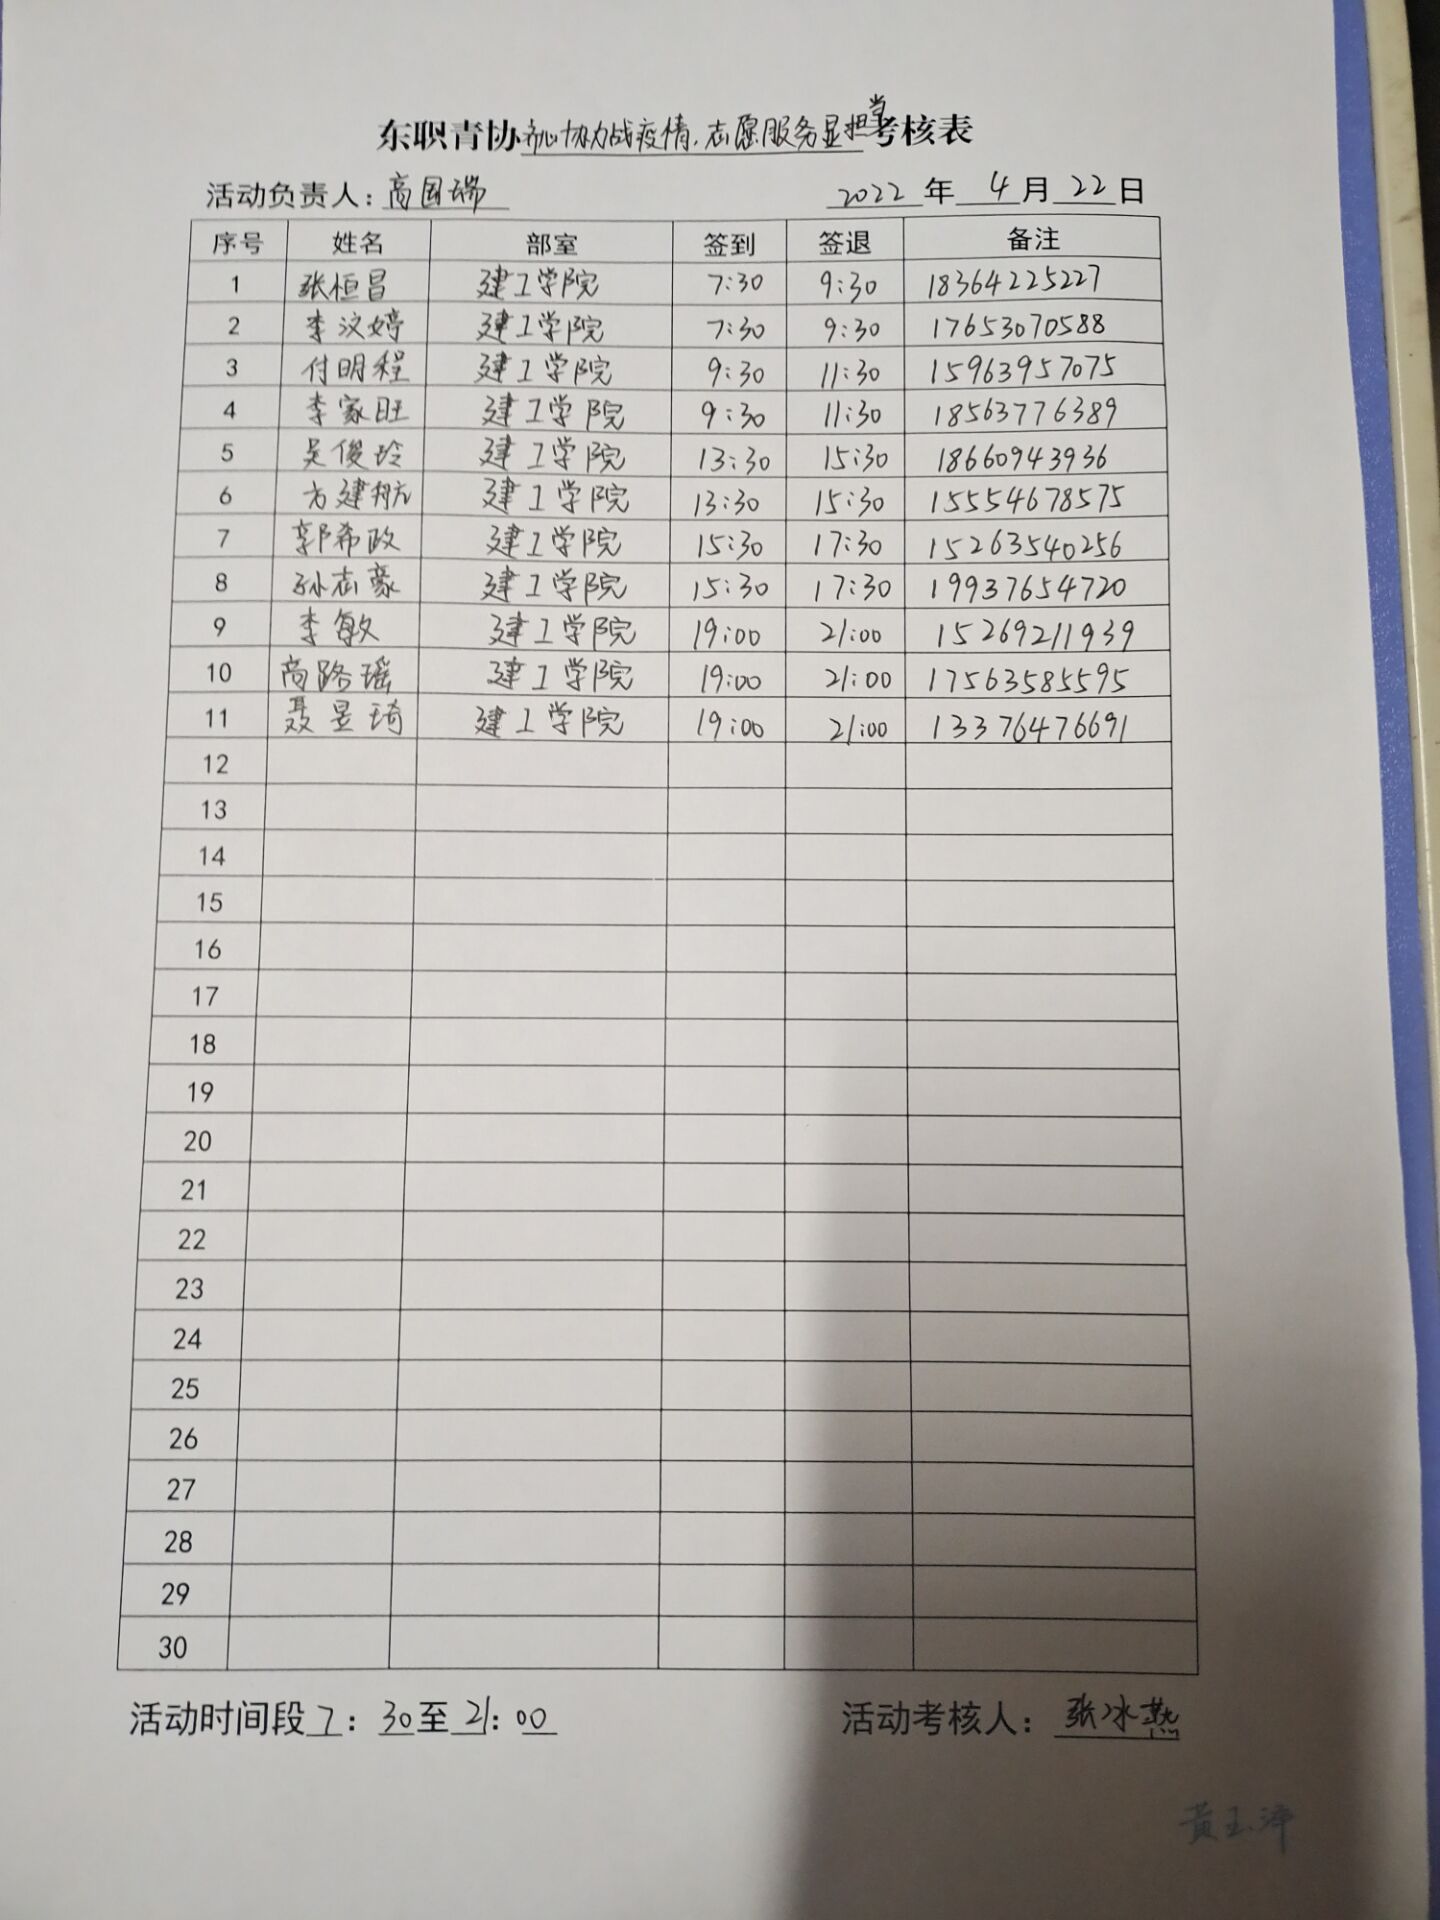 东职青协齐心协力战疫情,志愿服务显担当考核表
活动负责人:高国瑞 2022年4月22日
序号 姓名 部室 签到 签退 备注
1 张恒昌 建工学院 7:30 9:30 18364225227
2 李汶婷 建工学院 7:30 9:30 17653070588
3 付明程 建工学院 9:30 11:30 15963957075
4 李家旺 建工学院 9:30 11:30 18563776389
5 吴俊玲 建工学院 13:30 15:30 18660943936
6 方建航 建工学院 13:30 15:30 15554678575
7 郭希政 建工学院 15:30 17:30 15263540256
8 孙志豪 建工学院 15:30 17:30 19937654720
9 李敏 建工学院 19:00 21:00 15269211939
10 高路瑶 建工学院 19:00 21:00 17563585595
11 聂昱琦 建工学院 19:00 21:00 13376476691
12
13
14
15
16
17
18
19
20
21
22
23
24
25
26
27
28
29
30
活动时间段7:30至21:00 活动考核人:张冰
黄玉